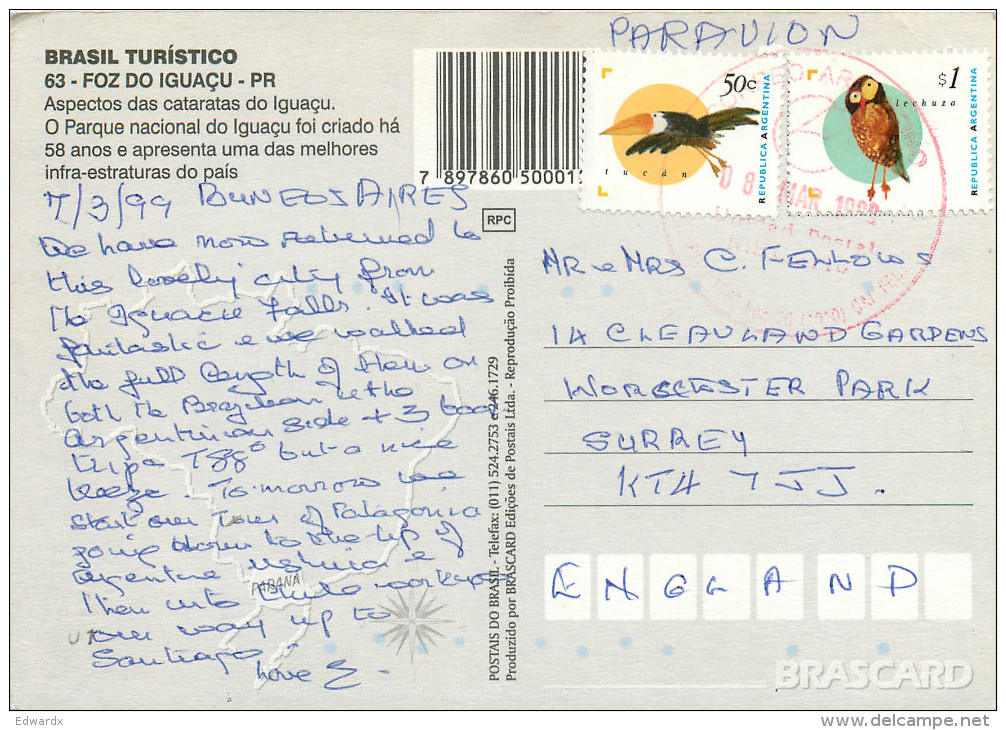 PARAVION
BRASIL TURÍSTICO
63 - FOZ DO IGUAÇU - PR
Aspectos das cataratas do Iguaçu.
O Parque nacional do Iguaçu foi criado há
58 anos e apresenta uma das melhores
infra-estraturas do país
7 897860 50001
50c
tucán
REPUBLICA ARGENTINA
$1
lechuza
REPUBLICA ARGENTINA
08 MAR 1999
RPC
7/3/99 BUNEOS AIRES
We have now returned to
this lovely city from
the Iguacu Falls. It was
fantastic & we walked
the full length of them on
both the Brazilian & the
Argentinian side + 3 boat
trips T88° but a nice
breeze. Tomorrow we
start our Tour of Patagonia
going down to the tip of
Argentina Ushuia &
then into Chile working
our way up to
Santiago.
Love E -
PARANÁ
POSTAIS DO BRASIL - Telefax: (011) 524.2753 e 246.1729
Produzido por BRASCARD Edições de Postais Ltda. - Reprodução Proibida
MR & MRS C. FELLOWS
14 CLEAVLAND GARDENS
WORCESTER PARK
SURREY
KT4 7JJ.
ENGLAND
BRASCARD
Edwardx
www.delcampe.net